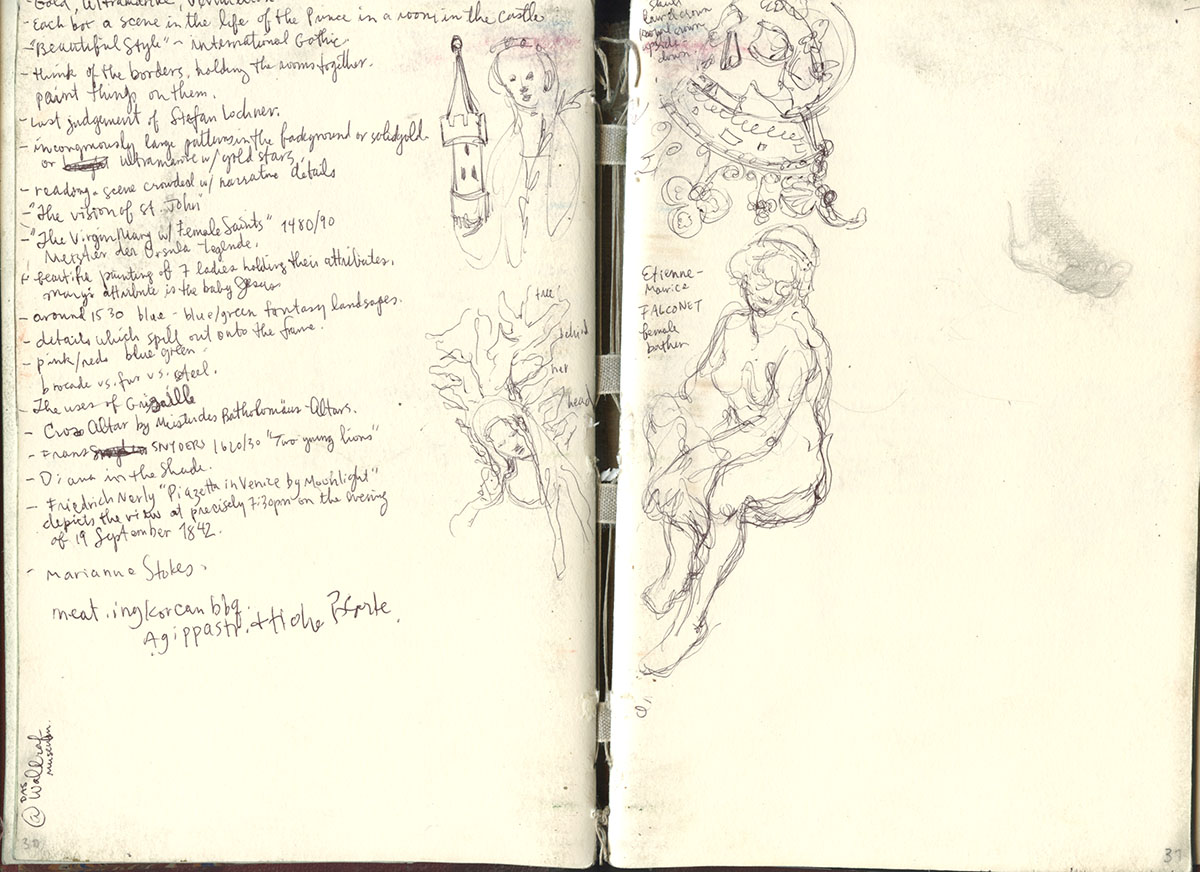 - Gold, Ultramarine, Vermillion
- Each box a scene in the life of the Prince in a room in the castle
- "Beautiful Style" ~ international Gothic.
- think of the borders, holding the rooms together.
paint things on them.
- Last judgement of Stefan Lochner.
- incongruously large patterns in the background or solid gold
or ultramarine w/ gold stars
- reading a scene crowded w/ narrative details
- "The vision of St. John"
- "The Virgin Mary w/ Female Saints" 1480/90
Meister der Ursula-Legende.
beatific painting of 7 ladies holding their attributes.
mary's attribute is the baby Jesus
- around 1530 blue - blue/green fantasy landscapes.
- details which spill out onto the frame.
- pink/reds blue green
brocade vs. fur vs. steel.
- The uses of Grisaille
- Cross Altar by Meister des Batholomäus-Altars.
- Frans SNYDERS 1620/30 "Two young lions"
- Diana in the Shade.
- Friedrich Nerly "Piazetta in Venice by Moonlight"
depicts the view at precisely 7:30pm on the evening
of 19 September 1842.
- Marianne Stokes.
meat.ing/korean bbq.
Agippastr. + Hohe Pforte.
@ DAS Wallraf museum.
30
tree
behind
her
head
down
Etienne-
Maurice
FALCONET
female
bather
31